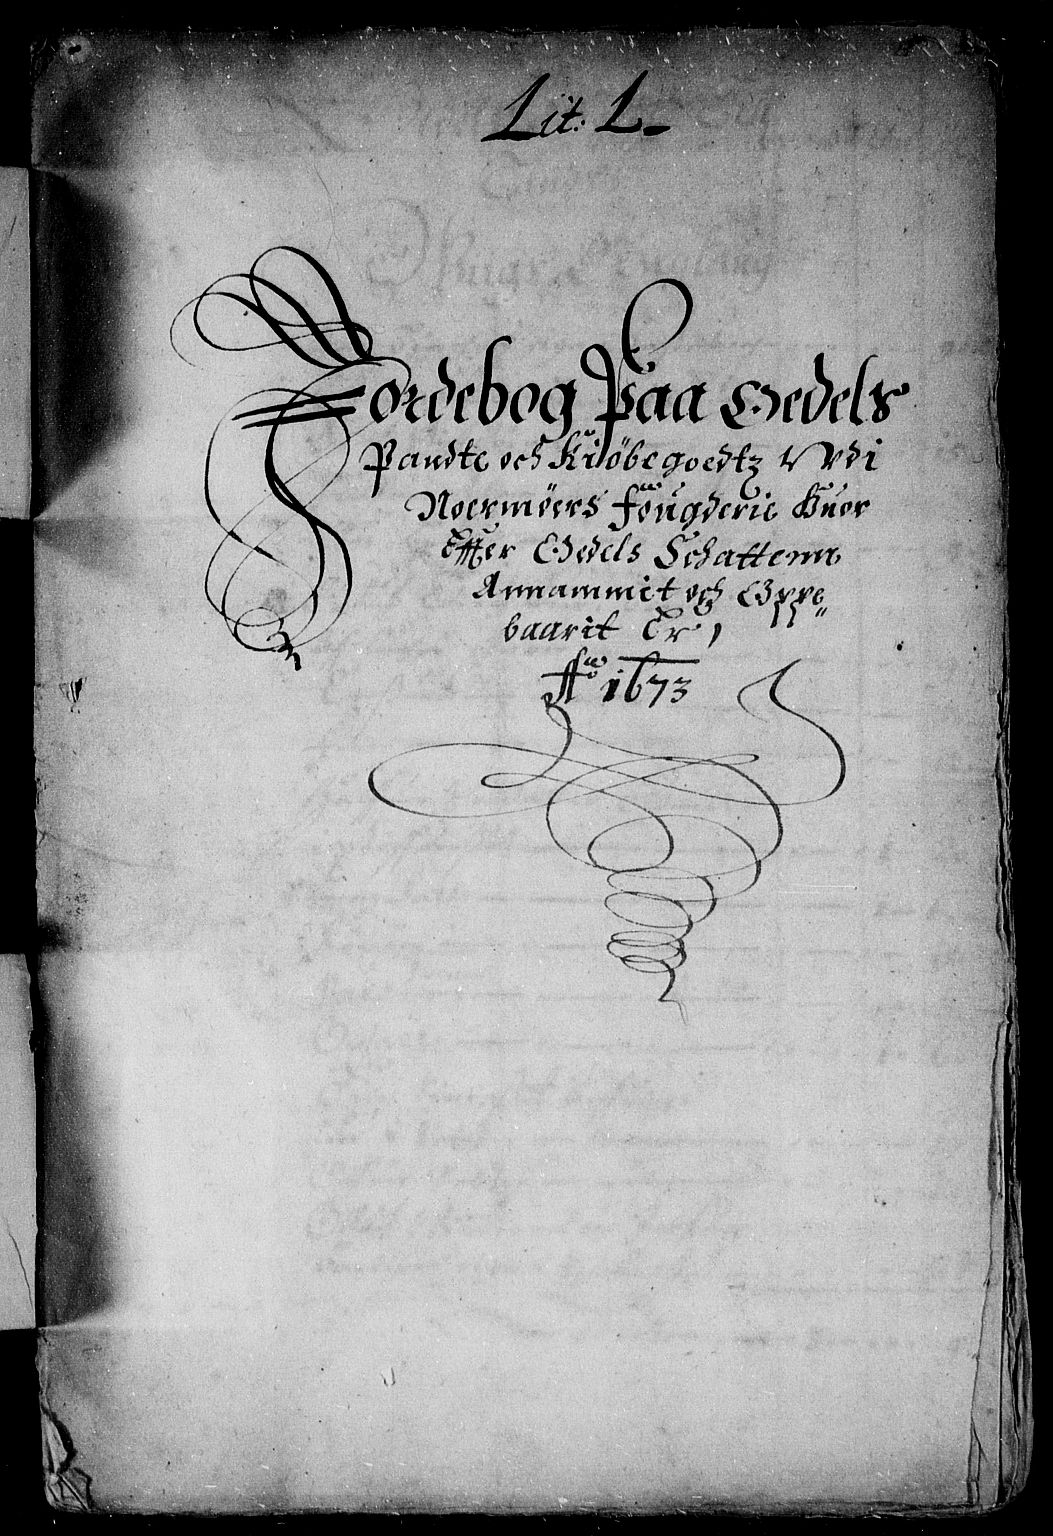 Lit: L.
Jordebog Paa Odels
Pandte och Kiøbegoedtz Udi
Noermøers fougderie Huor
Effter Odels Schattenn
Annammit och Oppe
baarit Er,
Ao 1673